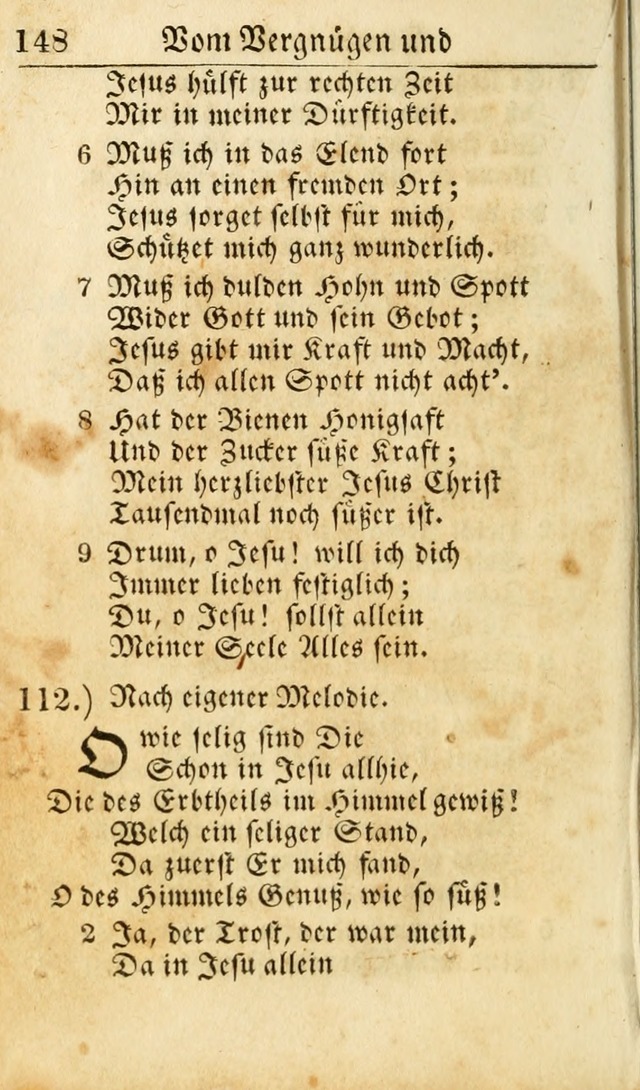 148 Vom Vergnügen und
Jesus hülft zur rechten Zeit
Mir in meiner Dürftigkeit.
6 Muß ich in das Elend fort
Hin an einen fremden Ort;
Jesus sorget selbst für mich,
Schützet mich ganz wunderlich.
7 Muß ich dulden Hohn und Spott
Wider Gott und sein Gebot;
Jesus gibt mir Kraft und Macht,
Daß ich allen Spott nicht acht’.
8 Hat der Bienen Honigsaft
Und der Zucker süße Kraft;
Mein herzliebster Jesus Christ
Tausendmal noch süßer ist.
9 Drum, o Jesu! will ich dich
Immer lieben festiglich;
Du, o Jesu! sollst allein
Meiner Seele Alles sein.
112.) Nach eigener Melodie.
O wie selig sind Die
Schon in Jesu allhie,
Die des Erbtheils im Himmel gewiß!
Welch ein seliger Stand,
Da zuerst Er mich fand,
O des Himmels Genuß, wie so süß!
2 Ja, der Trost, der war mein,
Da in Jesu allein